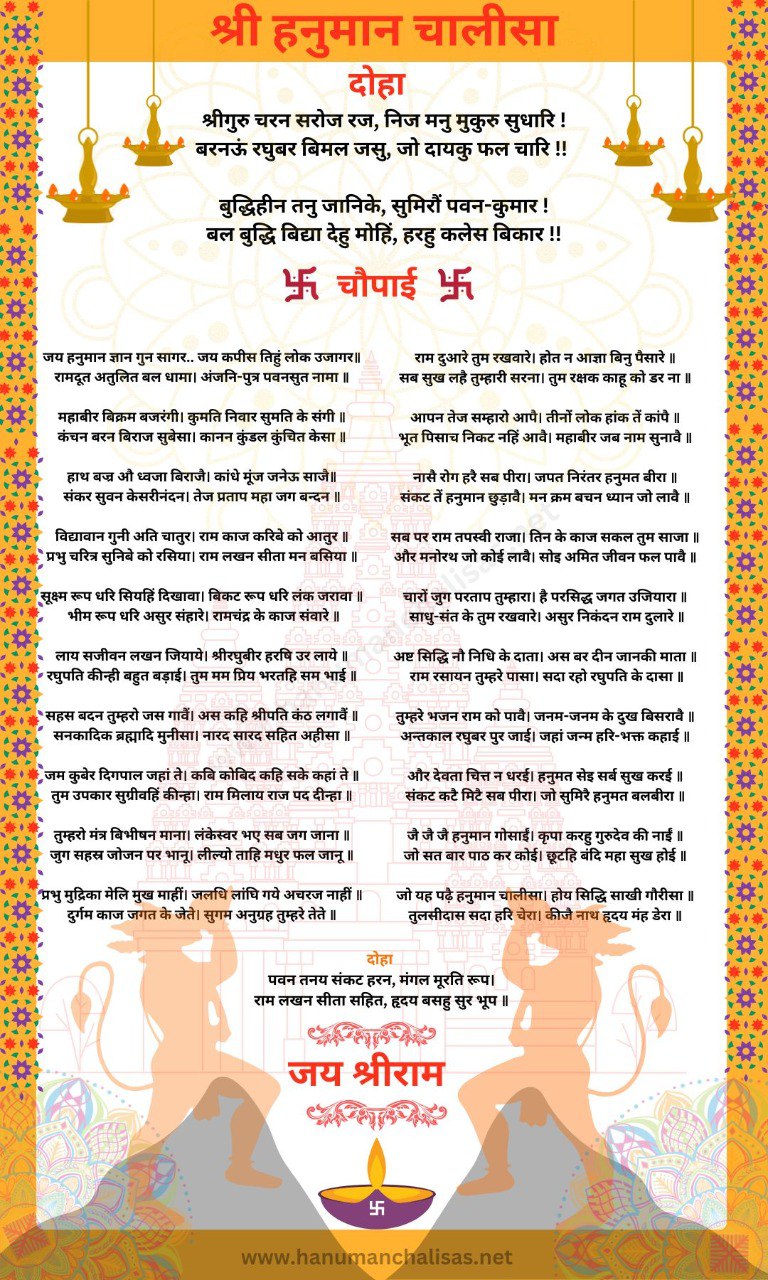 श्री हनुमान चालीसा
दोहा
श्रीगुरु चरन सरोज रज, निज मनु मुकुरु सुधारि !
बरनऊं रघुबर बिमल जसु, जो दायकु फल चारि !!
बुद्धिहीन तनु जानिके, सुमिरौं पवन-कुमार !
बल बुद्धि बिद्या देहु मोहिं, हरहु कलेस बिकार !!
卐 चौपाई 卐
जय हनुमान ज्ञान गुन सागर.. जय कपीस तिहुं लोक उजागर॥
रामदूत अतुलित बल धामा। अंजनि-पुत्र पवनसुत नामा ॥
महाबीर बिक्रम बजरंगी। कुमति निवार सुमति के संगी ॥
कंचन बरन बिराज सुबेसा। कानन कुंडल कुंचित केसा ॥
हाथ बज्र औ ध्वजा बिराजै। कांधे मूंज जनेऊ साजै॥
संकर सुवन केसरीनंदन। तेज प्रताप महा जग बन्दन ॥
विद्यावान गुनी अति चातुर। राम काज करिबे को आतुर ॥
प्रभु चरित्र सुनिबे को रसिया। राम लखन सीता मन बसिया ॥
सूक्ष्म रूप धरि सियहिं दिखावा। बिकट रूप धरि लंक जरावा ॥
भीम रूप धरि असुर संहारे। रामचंद्र के काज संवारे ॥
लाय सजीवन लखन जियाये। श्रीरघुबीर हरषि उर लाये ॥
रघुपति कीन्ही बहुत बड़ाई। तुम मम प्रिय भरतहि सम भाई ॥
सहस बदन तुम्हरो जस गावैं। अस कहि श्रीपति कंठ लगावैं ॥
सनकादिक ब्रह्मादि मुनीसा। नारद सारद सहित अहीसा ॥
जम कुबेर दिगपाल जहां ते। कबि कोबिद कहि सके कहां ते ॥
तुम उपकार सुग्रीवहिं कीन्हा। राम मिलाय राज पद दीन्हा ॥
तुम्हरो मंत्र बिभीषन माना। लंकेस्वर भए सब जग जाना ॥
जुग सहस्र जोजन पर भानू। लील्यो ताहि मधुर फल जानू ॥
प्रभु मुद्रिका मेलि मुख माहीं। जलधि लांघि गये अचरज नाहीं ॥
दुर्गम काज जगत के जेते। सुगम अनुग्रह तुम्हरे तेते ॥
राम दुआरे तुम रखवारे। होत न आज्ञा बिनु पैसारे ॥
सब सुख लहै तुम्हारी सरना। तुम रक्षक काहू को डर ना ॥
आपन तेज सम्हारो आपै। तीनों लोक हांक तें कांपै ॥
भूत पिसाच निकट नहिं आवै। महाबीर जब नाम सुनावै ॥
नासै रोग हरै सब पीरा। जपत निरंतर हनुमत बीरा ॥
संकट तें हनुमान छुड़ावै। मन क्रम बचन ध्यान जो लावै ॥
सब पर राम तपस्वी राजा। तिन के काज सकल तुम साजा ॥
और मनोरथ जो कोई लावै। सोइ अमित जीवन फल पावै ॥
चारों जुग परताप तुम्हारा। है परसिद्ध जगत उजियारा ॥
साधु-संत के तुम रखवारे। असुर निकंदन राम दुलारे ॥
अष्ट सिद्धि नौ निधि के दाता। अस बर दीन जानकी माता ॥
राम रसायन तुम्हरे पासा। सदा रहो रघुपति के दासा ॥
तुम्हरे भजन राम को पावै। जनम-जनम के दुख बिसरावै ॥
अन्तकाल रघुबर पुर जाई। जहां जन्म हरि-भक्त कहाई ॥
और देवता चित्त न धरई। हनुमत सेइ सर्ब सुख करई ॥
संकट कटै मिटै सब पीरा। जो सुमिरै हनुमत बलबीरा ॥
जै जै जै हनुमान गोसाईं। कृपा करहु गुरुदेव की नाईं ॥
जो सत बार पाठ कर कोई। छूटहि बंदि महा सुख होई ॥
जो यह पढ़ै हनुमान चालीसा। होय सिद्धि साखी गौरीसा ॥
तुलसीदास सदा हरि चेरा। कीजै नाथ हृदय मंह डेरा ॥
दोहा
पवन तनय संकट हरन, मंगल मूरति रूप।
राम लखन सीता सहित, हृदय बसहु सुर भूप ॥
जय श्रीराम
卐
www.hanumanchalisas.net